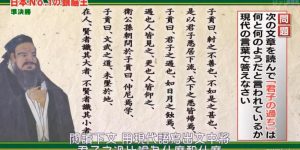 日本No.1の頭脳王
準決勝
問題
次の文章を読んで「君子の過ち」は
何と何のようだと言われているか
現代の言葉で答えなさい
子貢曰、紂之不善也、不如是之甚也、
是以君子惡居下流、天下之惡皆歸焉、
子貢曰、君子之過也、如日月之食焉、
過也人皆見之、更也人皆仰之、
衛公孫朝問於子貢曰、仲尼焉學、
子貢曰、文武之道、未墜於地、
在人、賢者識其大者、不賢者識其小
閱讀下文 用現代語寫出文中將
君子之過比喻為什麼和什麼